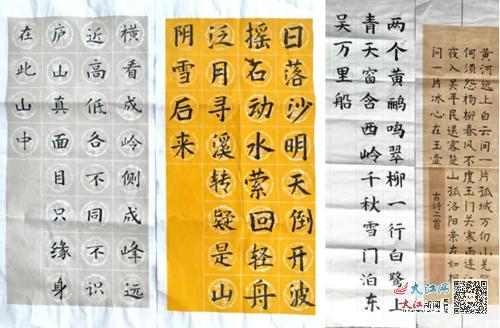 横看成岭侧成峰远
近高低各不同不识
庐山真面目只缘身
在此山中
日落沙明天倒开波
摇石动水萦回轻舟
泛月寻溪转疑是山
阴雪后来
两个黄鹂鸣翠柳一行白鹭上
青天窗含西岭千秋雪门泊东
吴万里船
黄河远上白云间一片孤城万仞山羌
何须怨杨柳春风不度玉门关寒雨连江
夜入吴平明送客楚山孤洛阳亲友如相
问一片冰心在玉壶
古诗二首
大江网
大江新闻